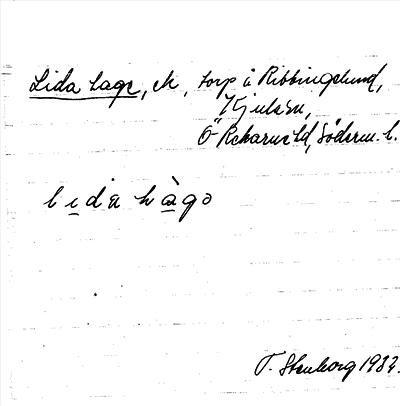 Lida hage, ek, torp å Ribbingelund,
Kjulsn,
Ö Rekarne hd, Söderm. l.
lida hàgo
T. Stenborg 1932.